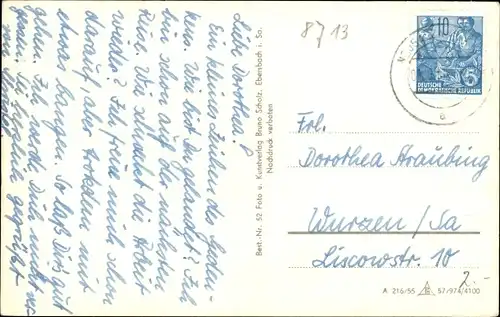 Liebe Dorothea!
Ein kleines Zeichen des Geden-
kens. Wie bist Du gelandet? Ich
bin schon auf der nächsten
Wie schmeckt die Arbeit
wieder? Ich freue mich schon
darauf, aber trotzdem mit
etwas Bangen. So laß Dir's gut
gehen. Ich werde Dich nicht ver-
gessen. Sei herzlich gegrüßt
von
Best.-Nr. 52 Foto u. Kunstverlag Bruno Scholz, Ebersbach i. Sa.
Nachdruck verboten
8713
10
5
DEUTSCHE
DEMOKRATISCHE REPUBLIK
Frl.
Dorothea Straubing
Wurzen/Sa
Liscowstr. 10
2.-
A 216/55 57/974/4100